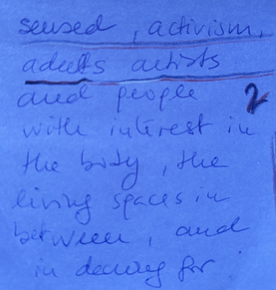 seused, activism,
adults artists
and people 2
with interest in
the body, the
living spaces in
between, and
in for